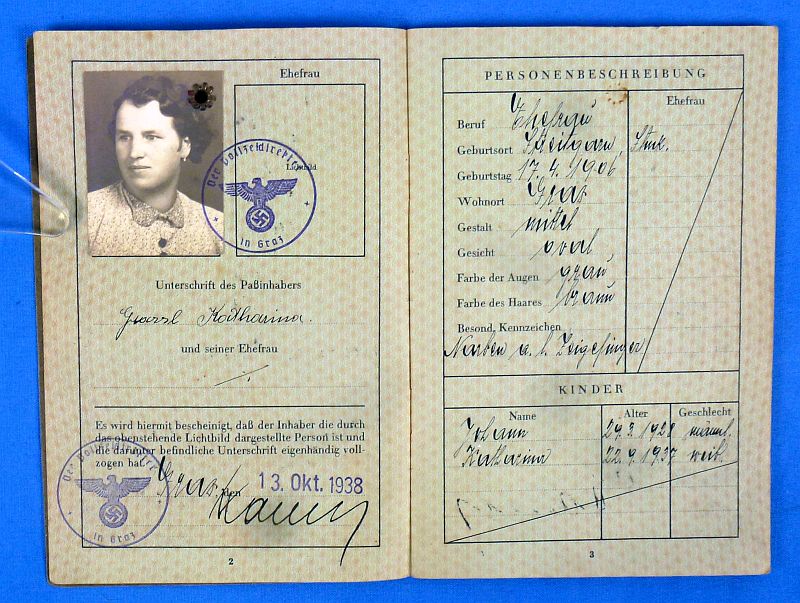 Ehefrau
Lichtbild
Der Polizeidirektor
in Graz
Unterschrift des Paßinhabers
Katharina.
und seiner Ehefrau
Es wird hiermit bescheinigt, daß der Inhaber die durch
das obenstehende Lichtbild dargestellte Person ist und
die darunter befindliche Unterschrift eigenhändig voll-
zogen hat.
Graz, den 13. Okt. 1938
Der Polizeidirektor
in Graz
2
PERSONENBESCHREIBUNG
Ehefrau
Beruf Ehefrau
Geburtsort
Geburtstag 17.4.1906
Wohnort Graz
Gestalt mittel
Gesicht oval
Farbe der Augen grau
Farbe des Haares braun
Besond. Kennzeichen
Narben a. l. Zeigefinger
KINDER
Name Alter Geschlecht
Johann 29.3.1928 männl.
Katharina 22.9.1937 weib.
3